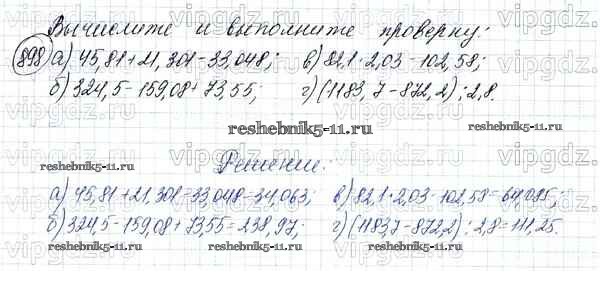 Вычислите и выполните проверку:
898 а) 45,81+21,301-33,048; в) 82,1·2,03-102,58;
б) 324,5-159,08+73,55; г) (1183,7-872,2):2,8.
reshebnik5-11.ru
reshebnik5-11.ru
Решение:
а) 45,81+21,301-33,048=34,063; в) 82,1·2,03-102,58=64,085;
б) 324,5-159,08+73,55=238,97; г) (1183,7-872,2):2,8=111,25.
reshebnik5-11.ru
reshebnik5-11.ru
vipgdz.
vipgdz.
vipgdz.
vipgdz.
vipgdz.
vipgdz.
vipgdz.